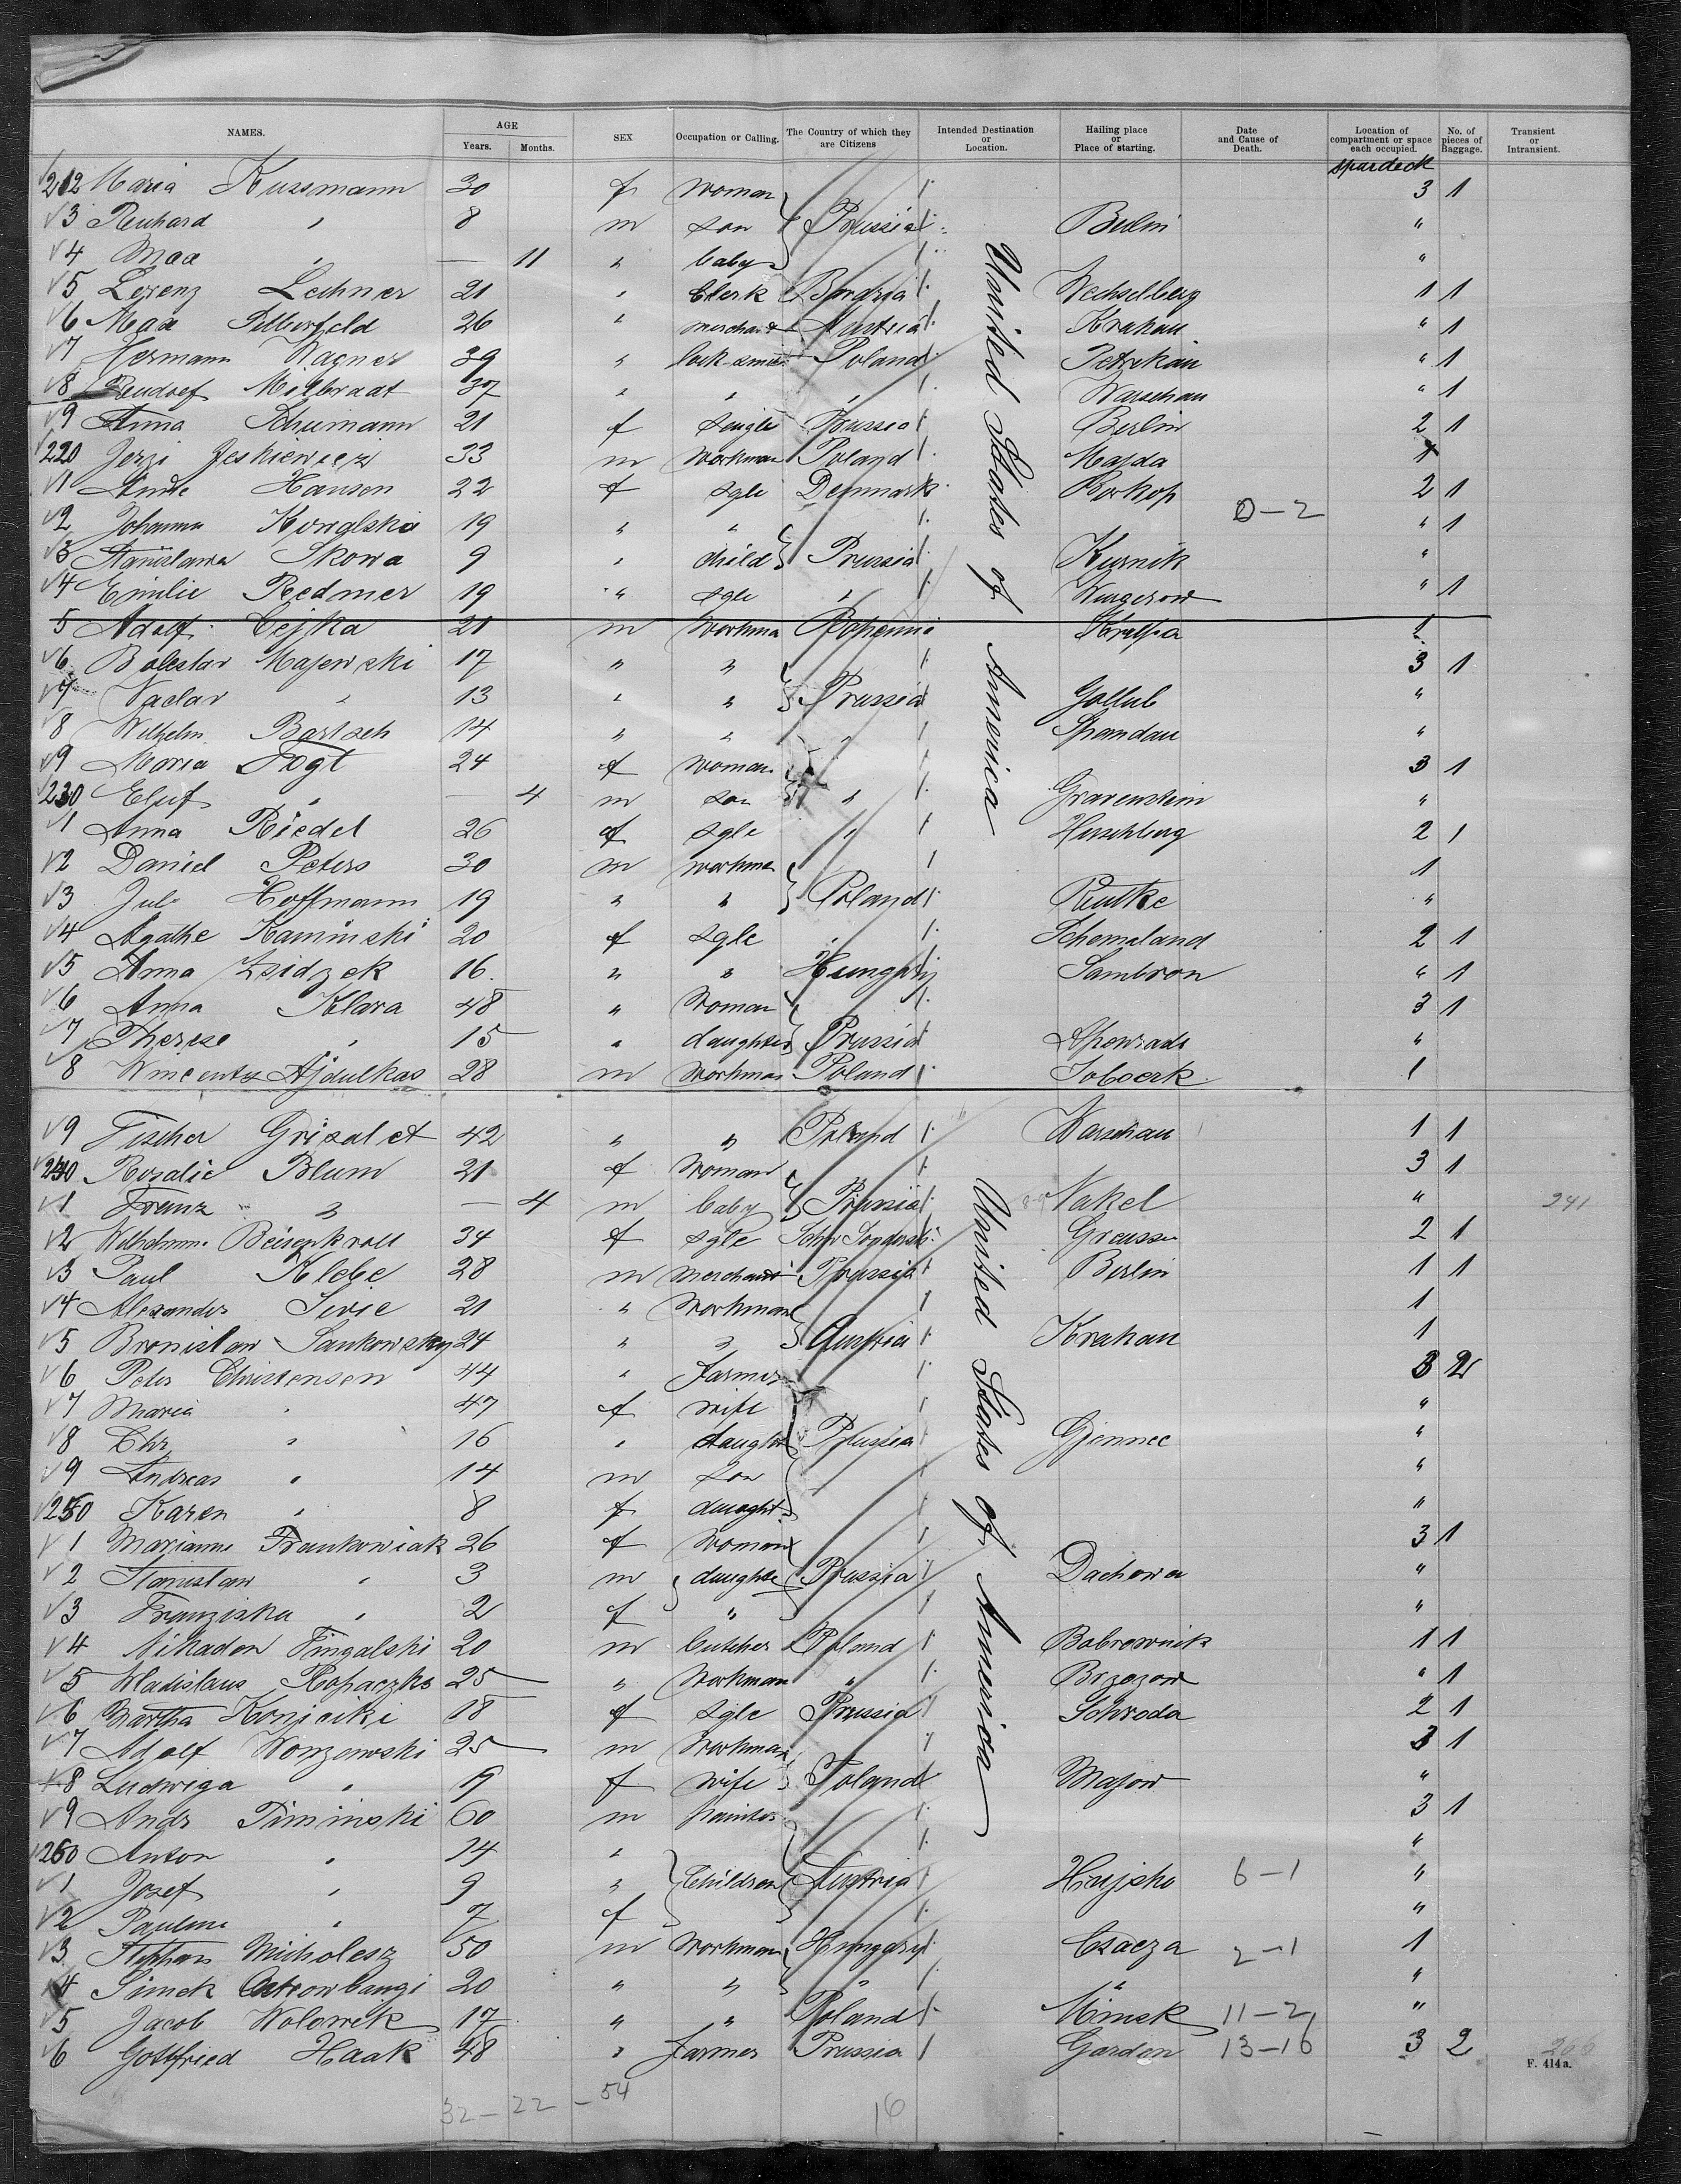 NAMES. AGE Years. Months. SEX Occupation or Calling. The Country of which they are Citizens Intended Destination or Location. Hailing place or Place of starting. Date and Cause of Death. Location of compartment or space each occupied. No. of pieces of Baggage. Transient or Intransient.
spardeck
United States of America
212 Maria Kussmann 30 f woman 3 1
3 " 8 m son Prussia Berlin "
4 Max " — 11 " baby "
5 Lorenz Lechner 21 " Clerk Wechselberg 1 1
6 Max Silberfeld 26 " merchant Austria Krakau " 1
7 Hermann Wagner 39 " Poland Petrikau " 1
8 Rudolf Milbradt 37 " " " Warschau " 1
9 Anna Schumann 21 f single Prussia Berlin 2 1
220 Jerzi Jeskiewicz 33 m Workman Poland Majda
1 Anne Hansen 22 f sgle Denmark Borkop 2 1
0-2
2 Johanna Kowalska 19 " " " 1
3 Stanislawa Skowa 9 " child Prussia Kurnik "
4 Emilie Redmer 19 " sgle " " 1
5 Adolf Cejka 21 m Workma 1
6 Boleslav Majewski 17 " " 3 1
7 Vaclav " 13 " " Prussia Gollub "
8 Wilhelm Bartsch 14 " " " Spandau "
9 Maria Vogt 24 f Woman 3 1
230 " — 4 m son " Gravenstein "
1 Anna Riedel 26 f sgle " Hirschberg 2 1
2 Daniel Peters 30 m workman 1
3 Jul. Hoffmann 19 " " Poland Rutke "
4 Agathe Kaminski 20 f sgle " 2 1
5 Anna Zsidzek 16 " " Hungary Sambron " 1
6 Anna Klara 48 " Woman 3 1
7 Therese " 15 " daughter Prussia "
8 Wincenty 28 m Workman Poland 1
9 Fischer Grisalet 42 " " Poland Warschau 1 1
240 Rosalie Blum 21 f Woman 3 1
1 Franz " — 4 m baby Prussia Nakel " 241
2 34 f sgle Greussen 2 1
3 Paul Klebe 28 m Merchant Prussia Berlin 1 1
4 Alexander 21 " Workman 1
5 Bronislaw Sankowsky 24 " " Austria Krakau 1
6 Peter Christensen 44 " Farmer 3 2
7 Maria " 47 f wife "
8 Chr. " 16 " daughter Prussia Gjenner "
9 Andreas " 14 m son "
250 Karen " 8 f daught. "
United States of America
1 Marianne Frankowiak 26 f Woman 3 1
2 Stanislaw " 3 m daughter Prussia Dachowa "
3 Franziska " 2 f " "
4 Nikadon Fingalski 20 m butcher Poland Bobrownik 1 1
5 Wladislaus Kopaczko 25 " Workman " Brzezow " 1
6 Martha Konjeiki 18 f sgle Prussia Schroda 2 1
7 Adolf Wonzewski 25 m Workman 3 1
8 Ludwiga " 19 f wife Poland Majow "
9 Andr. Timinski 60 m painter 3 1
260 Anton " 14 " "
1 Josef " 9 " Children Austria Hajsko 6-1 "
2 Pauline " 7 f "
3 Stephan Micholesz 50 m Workman Hungary Csacza 2-1 1
4 Simek 20 " " " " "
5 Jacob Wolowik 17 " " Poland Minsk 11-2 "
6 Gottfried Haak 48 " Farmer Prussia Garden 13-16 3 2 266
F. 414a.
32 - 22 - 54
16